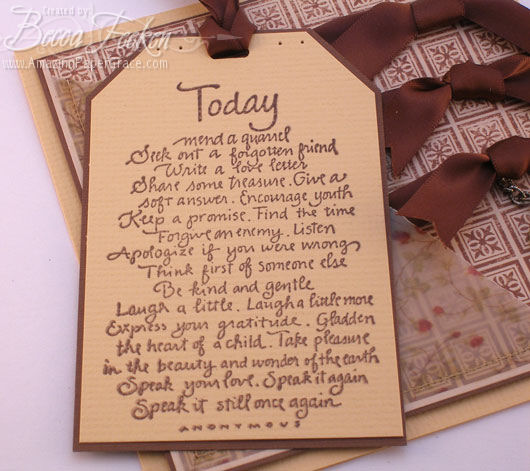 Created by:
Becca Feeken
www.AmazingPaperGrace.com
Today
mend a quarrel
Seek out a forgotten friend
Write a love letter
Share some treasure. Give a
soft answer. Encourage youth
Keep a promise. Find the time
Forgive an enemy. Listen
Apologize if you were wrong
Think first of someone else
Be kind and gentle
Laugh a little. Laugh a little more
Express your gratitude. Gladden
the heart of a child. Take pleasure
in the beauty and wonder of the earth
Speak your love. Speak it again
Speak it still once again
ANONYMOUS